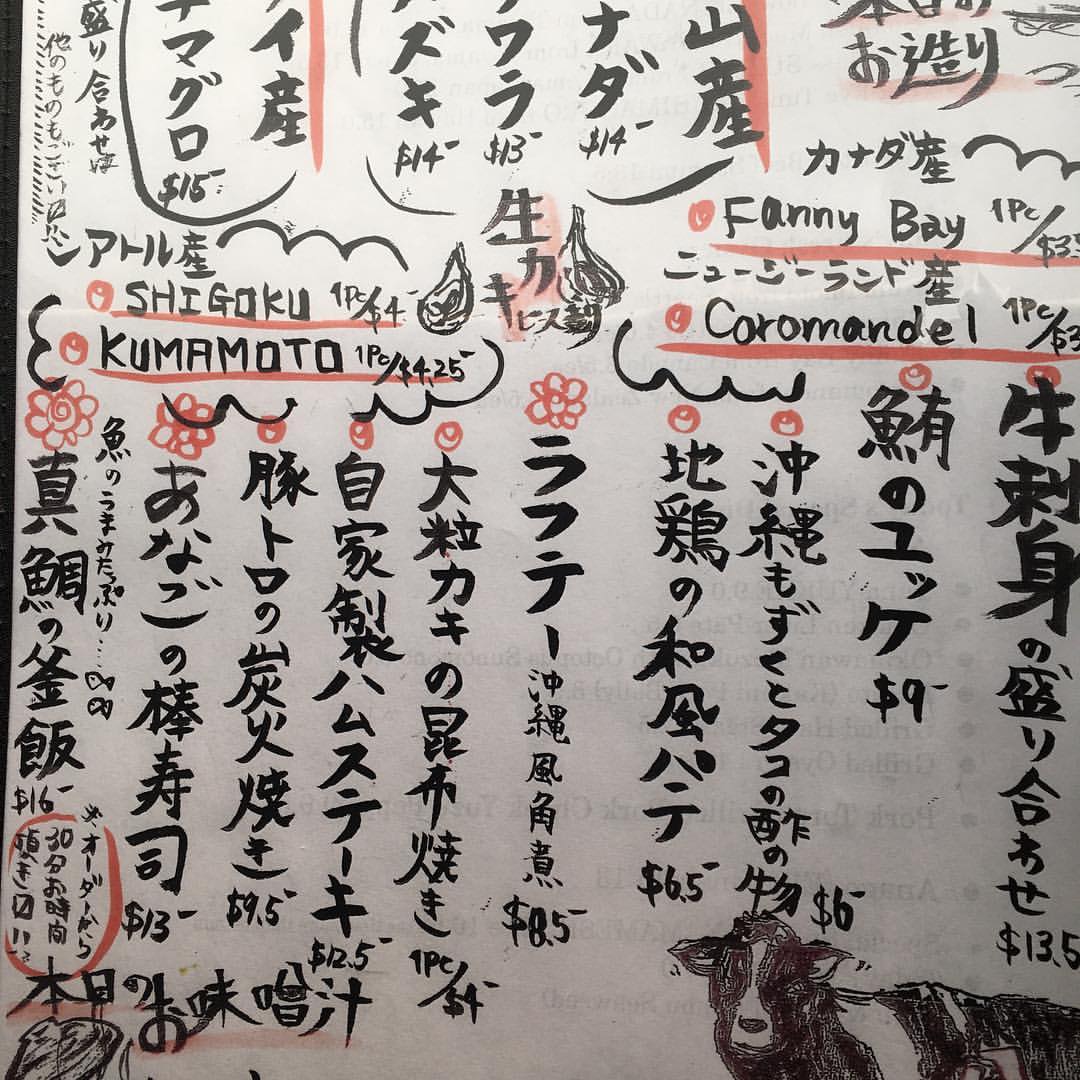 お造り
山産
ナダ $14-
ウラ $13-
ズキ $14-
イ産
マグロ $15-
盛り合わせは
他のものもございます
生カキ
カナダ産
Fanny Bay 1Pc/$3.
ニュージーランド産
Coromandel 1Pc/$3
アトル産
SHIGOKU 1Pc/$4-
KUMAMOTO 1Pc/$4.25
牛刺身の盛り合わせ $13.5
鮪のユッケ $9-
沖縄もずくとタコの酢の物 $6-
地鶏の和風パテ $6.5-
ラフテー 沖縄風角煮 $8.5-
大粒カキの昆布焼き 1Pc/$4-
自家製ハムステーキ $12.5-
豚トロの炭火焼き $9.5-
あなごの棒寿司 $13-
魚のうまみたっぷり…
真鯛の釜飯 $16-
※オーダーから
30分お時間
頂きます
本日のお味噌汁